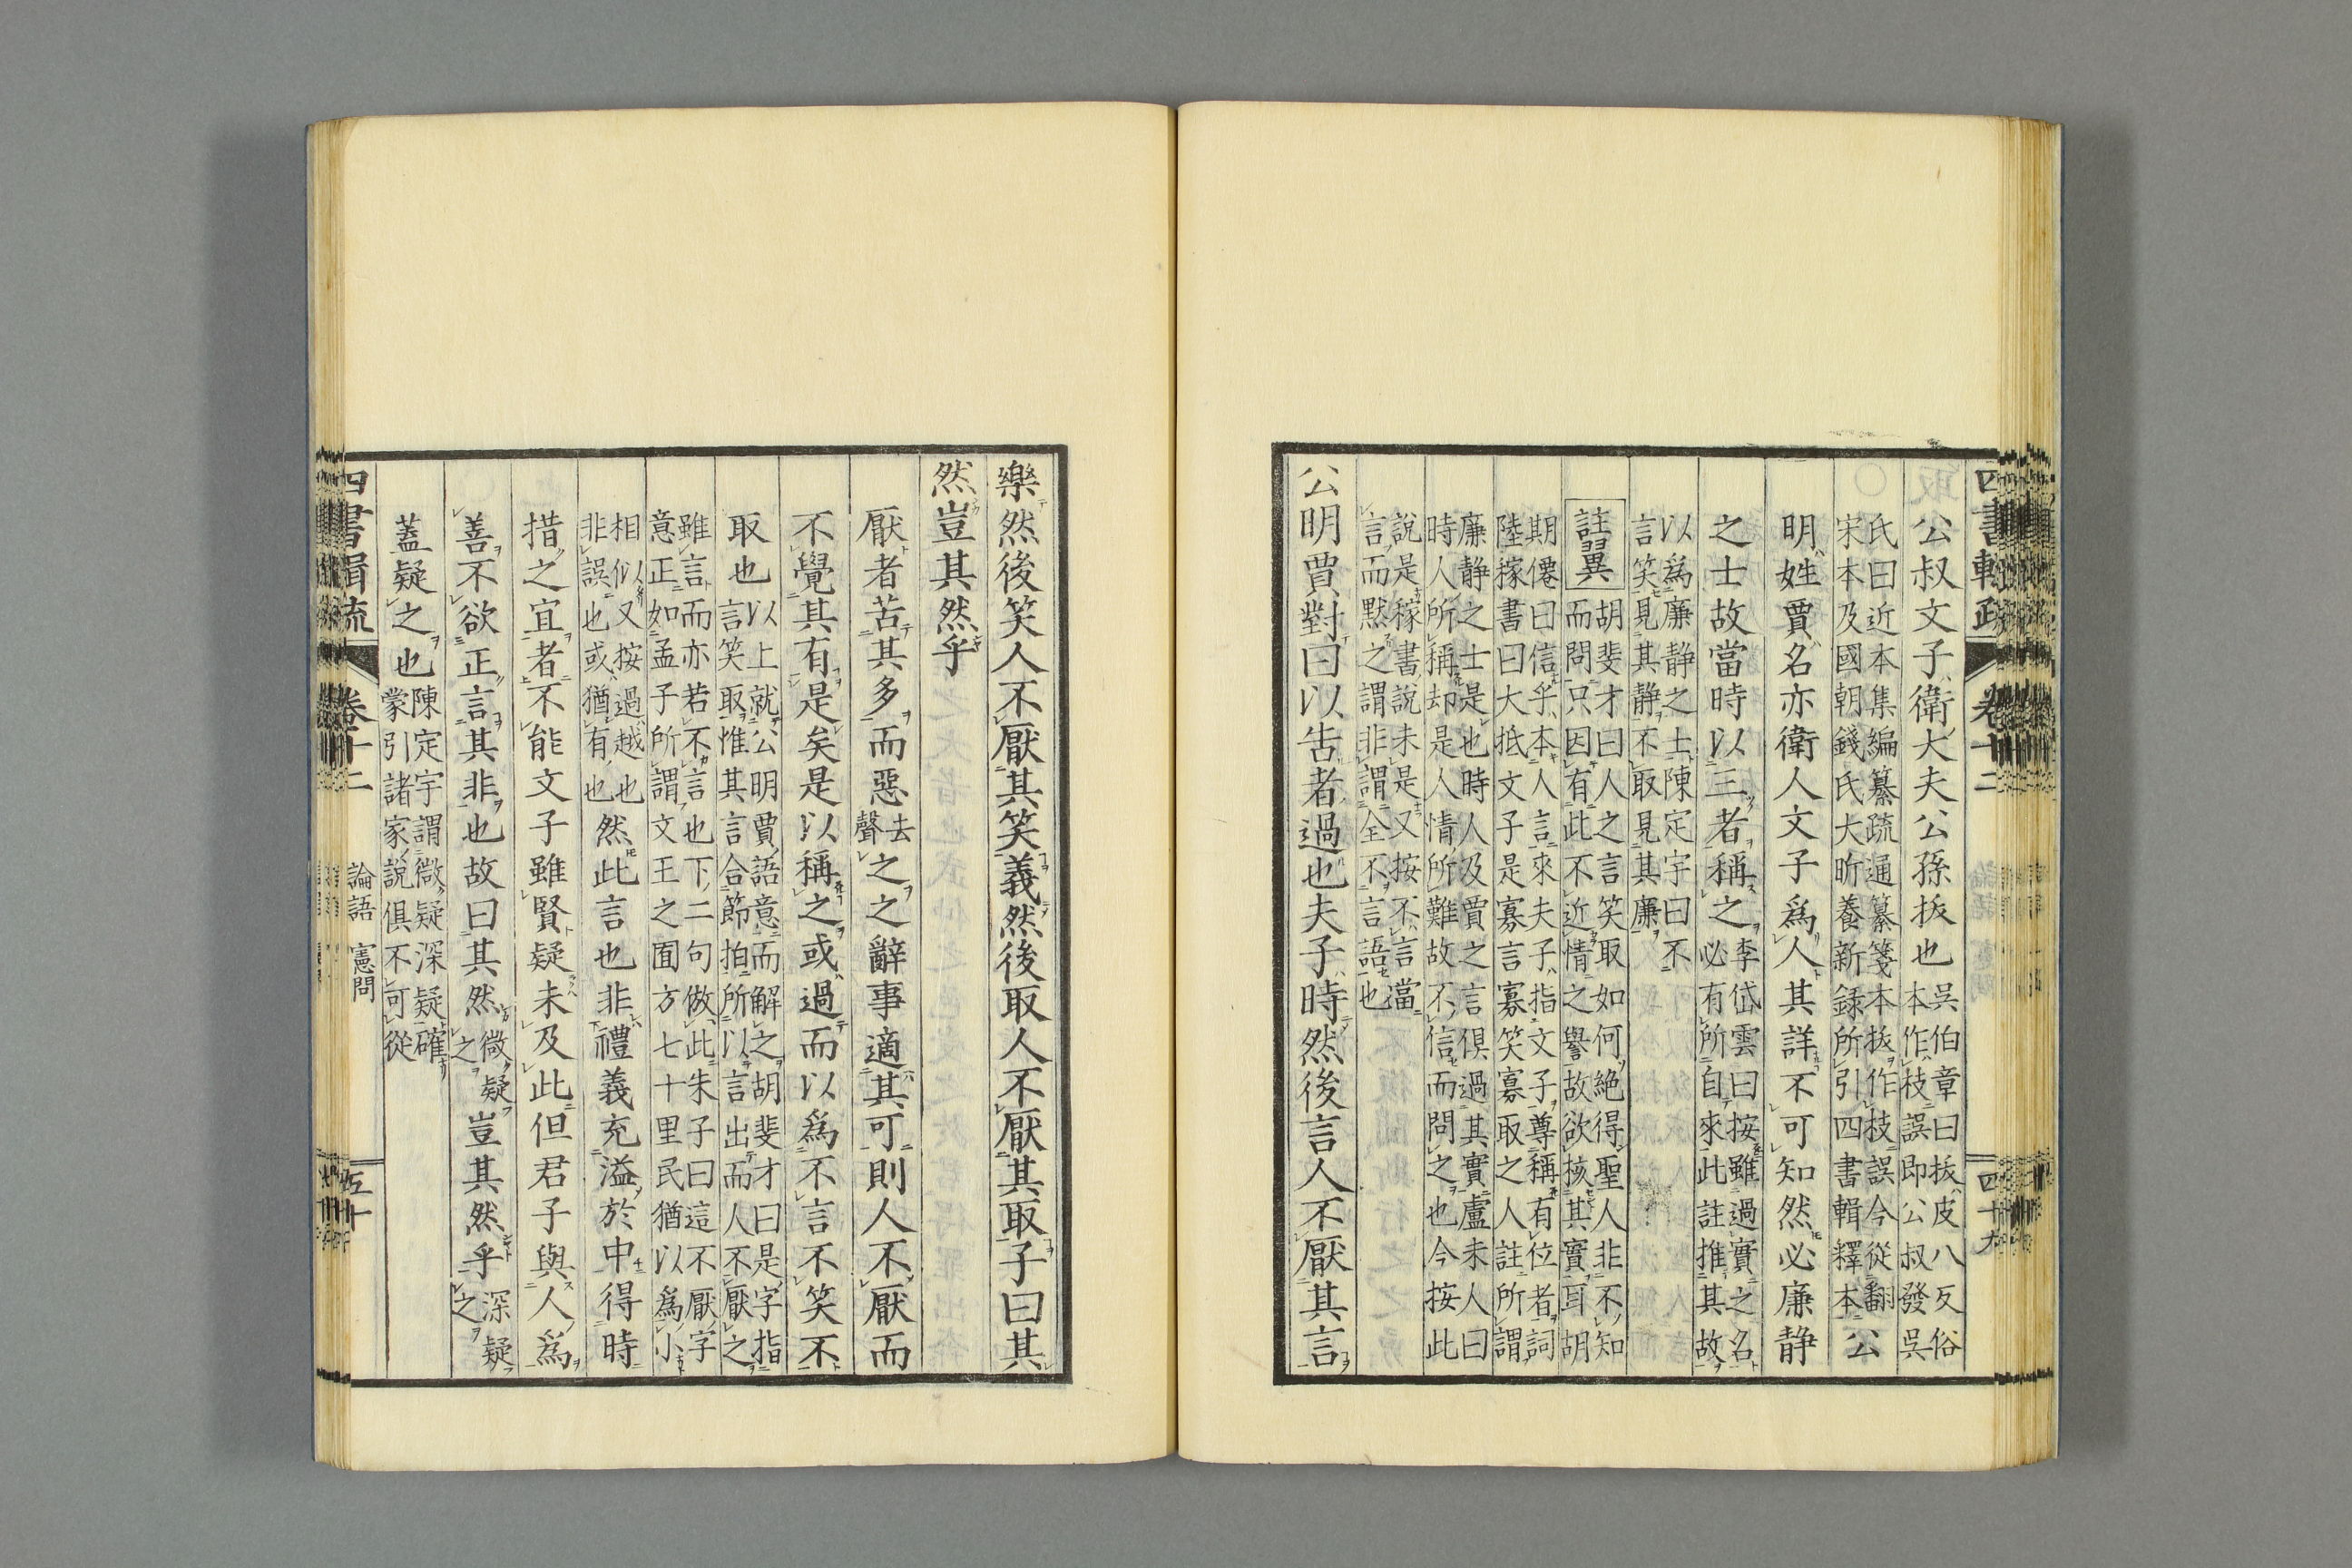 公叔文子衛大夫公孫拔也吳伯章曰拔皮八反俗
本作枝誤即公叔發吳
氏曰近本集編纂疏通纂箋本拔作枝誤今從翻
宋本及國朝錢氏大昕養新録所引四書輯釋本公
明姓賈名亦衛人文子爲人其詳不可知然必廉静
之士故當時以三者稱之李岱雲曰按雖過實之名
必有所自來此註推其故
以爲廉静之士陳定宇曰不
言笑見其静不取見其廉
註翼
胡斐才曰人之言笑取如何絶得聖人非不知
而問只因有此不近情之譽故欲核其實耳胡
期僊曰信乎本人言來夫子指文子尊稱有位者詞
陸稼書曰大抵文子是寡言寡笑寡取之人註所謂
廉静之士是也時人及賈之言俱過其實盧未人曰
時人所稱却是人情所難故不信而問之也今按此
說是稼書說未是又按不言當
言而默之謂非謂全不言語也
公明賈對曰以告者過也夫子時然後言人不厭其言
四書輯疏 卷十二 四十九
樂然後笑人不厭其笑義然後取人不厭其取子曰其
然豈其然乎
厭者苦其多而惡去聲之之辭事適其可則人不厭而
不覺其有是矣是以稱之或過而以爲不言不笑不
取也以上就公明賈語意而解之胡斐才曰是字指
言笑取惟其言合節拍所以言出而人不厭之
雖言而亦若不言也下二句倣此朱子曰這不厭字
意正如孟子所謂文王之囿方七十里民猶以爲小
相似又按過越也
非誤也或猶有也然此言也非禮義充溢於中得時
措之宜者不能文子雖賢疑未及此但君子與人爲
善不欲正言其非也故曰其然微疑之豈其然乎深疑之
蓋疑之也陳定宇謂微疑深疑確
蒙引諸家說俱不可從
四書輯疏 卷十二 論語 憲問 五十